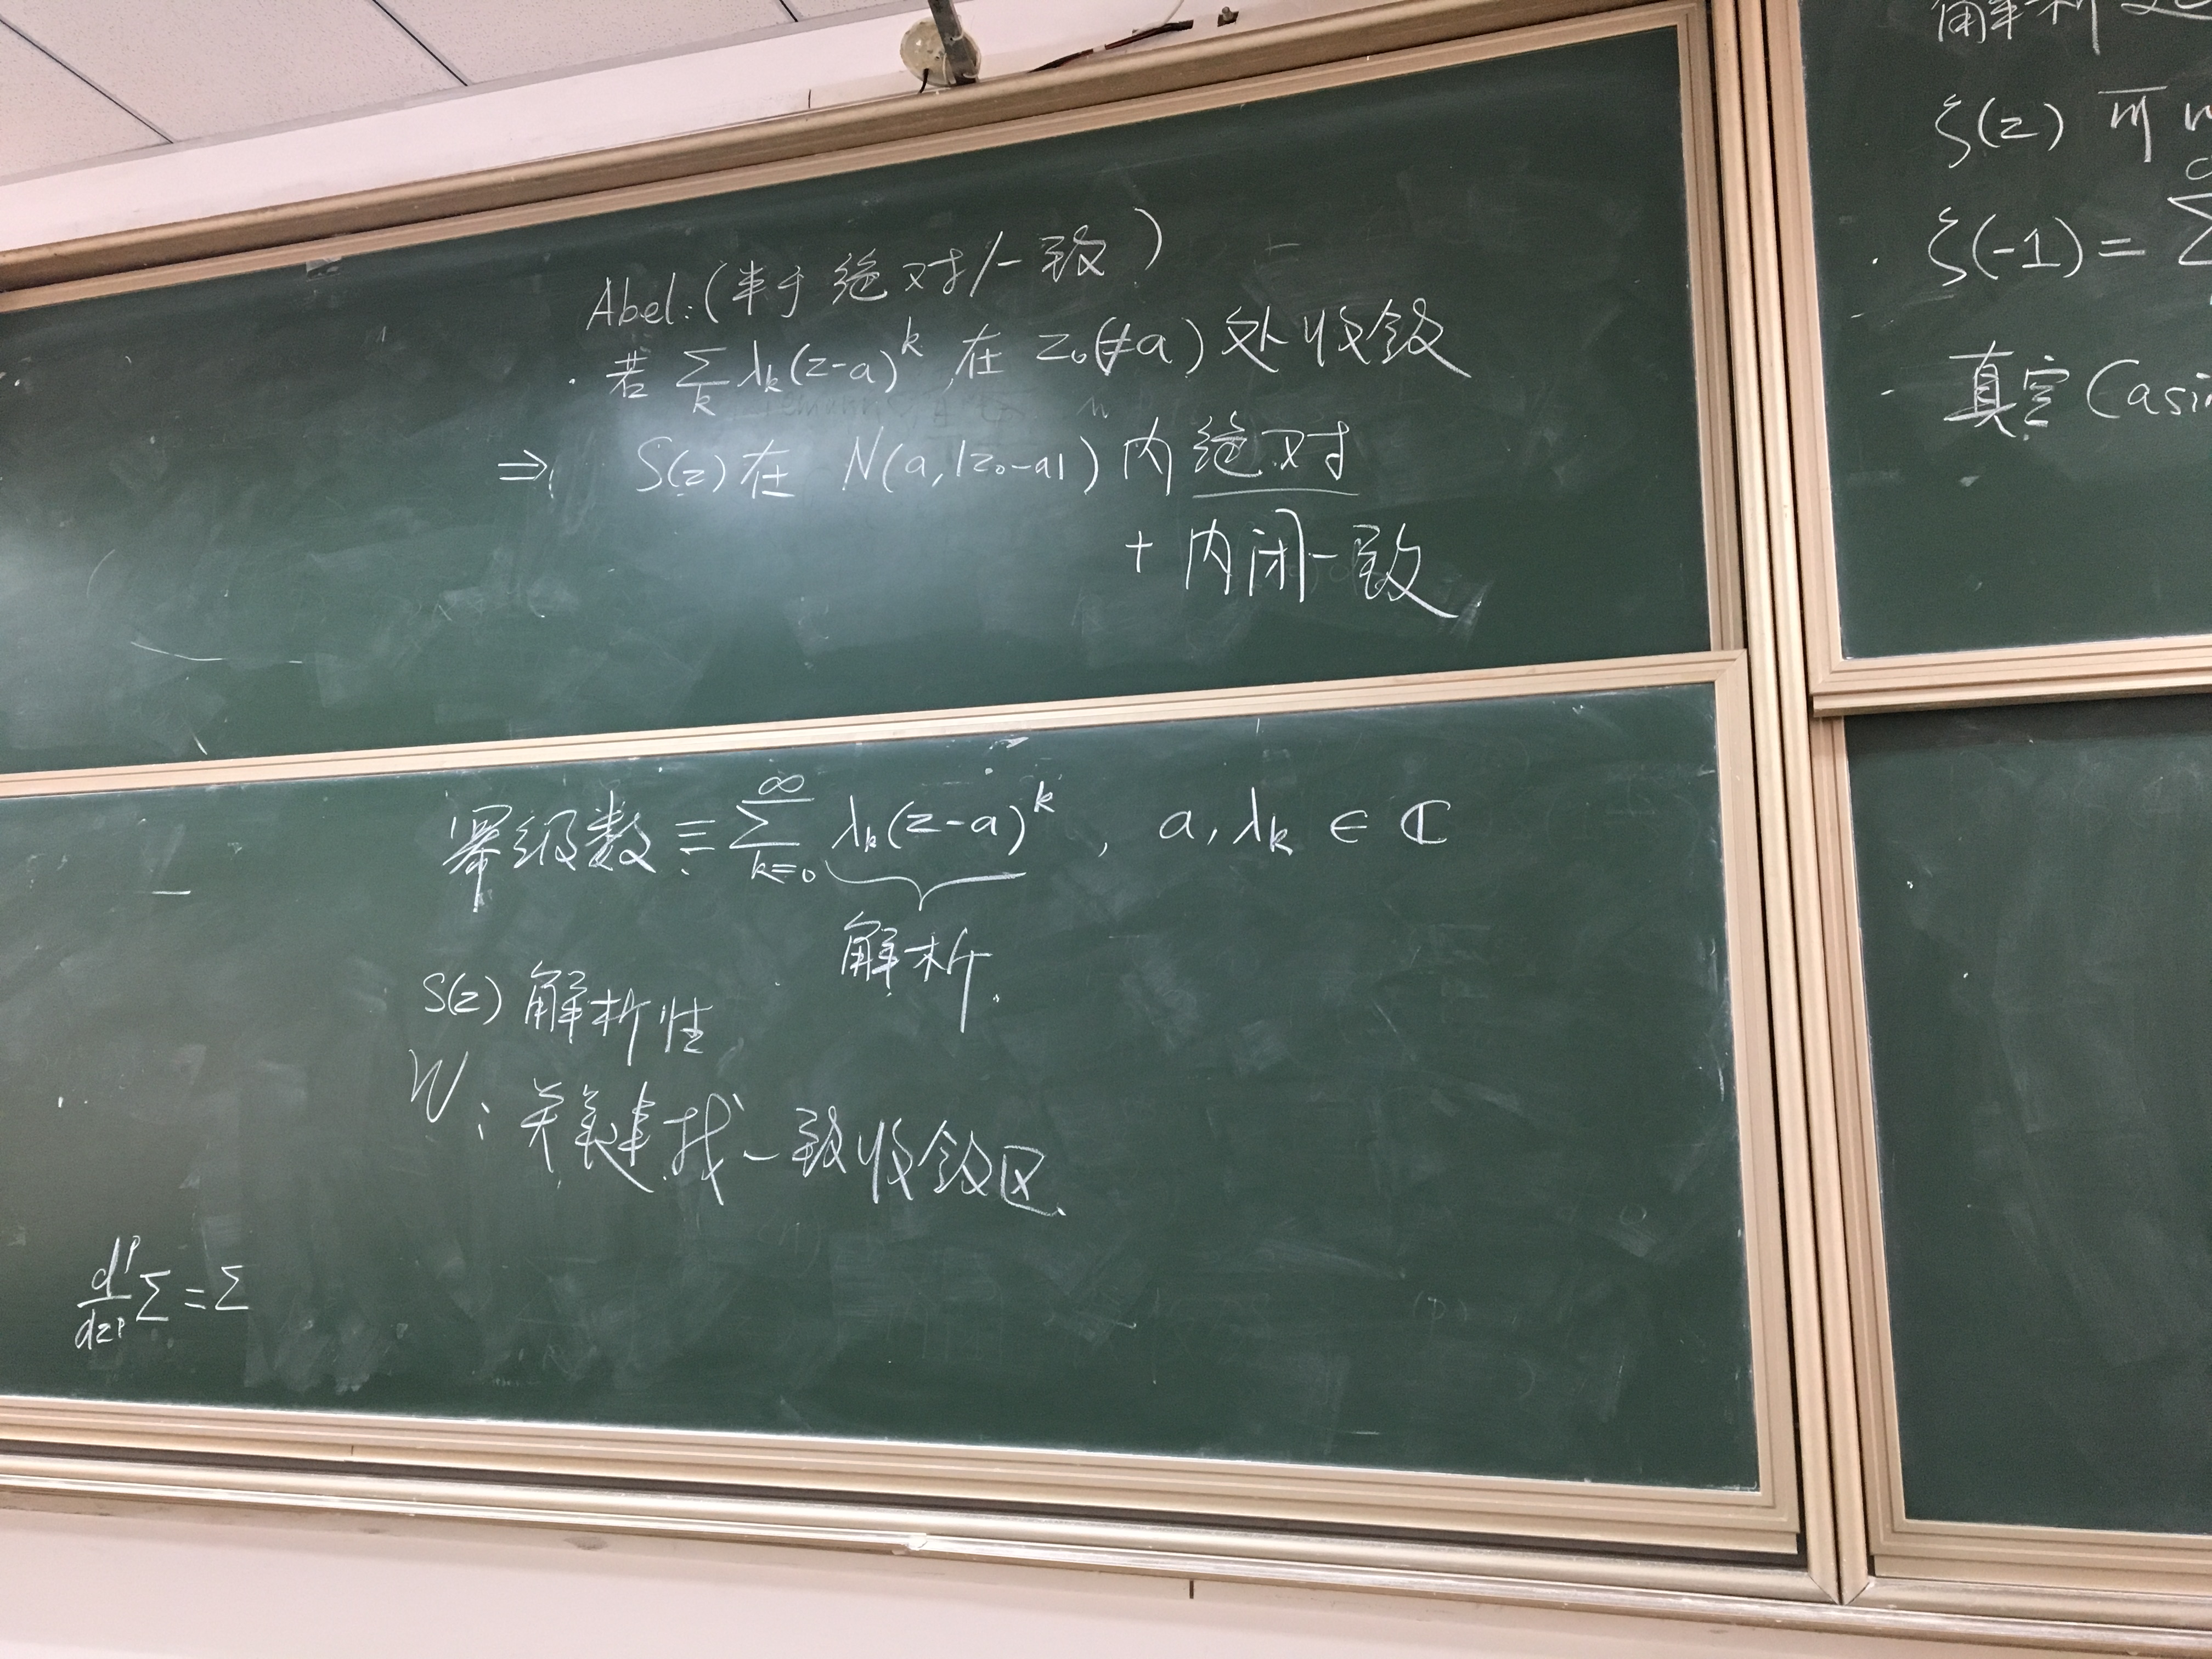 Abel:(关于绝对/一致)
· 若 ∑_k λ_k(z-a)^k 在 z_0(≠a) 处收敛
⇒ S(z) 在 N(a,|z_0-a|) 内绝对
+ 内闭一致
幂级数 ≡ ∑_{k=0}^∞ λ_k(z-a)^k , a, λ_k ∈ ℂ
解析.
S(z) 解析性
W: 关键找一致收敛区
d^p/dz^p ∑ = ∑
解析
ζ(z) 可
· ζ(-1) = ∑
- 真空 Casi